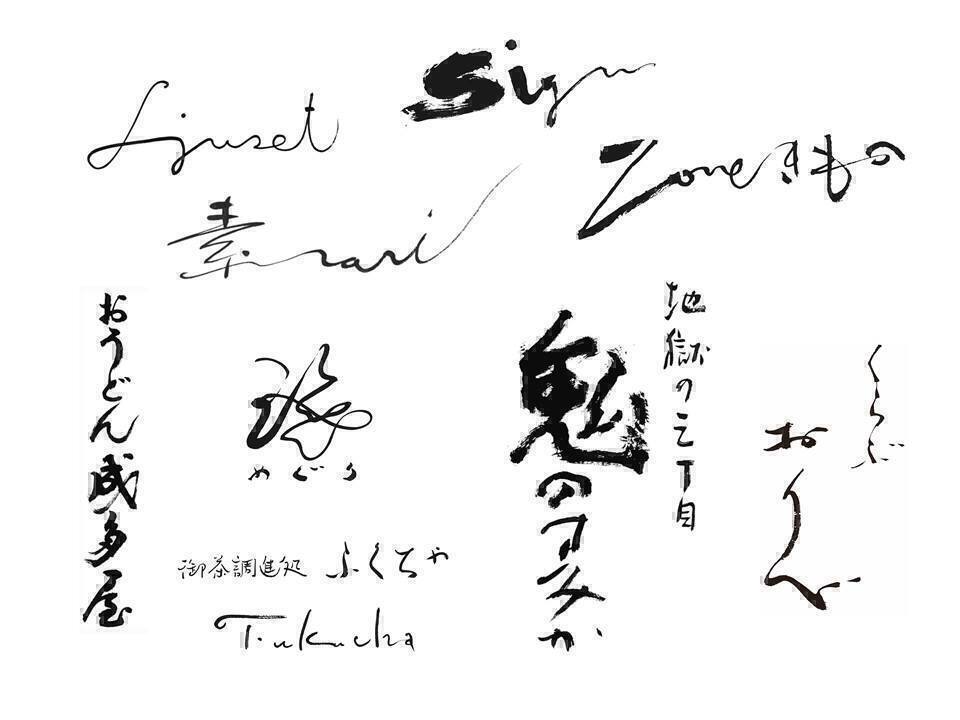 Sign
Ljuset
Zoneきもの
素rari
おうどん成多屋
めぐり
御茶調進処 ふくちや
Fukucha
地獄の三丁目
鬼のすみか
くらぶ
おりべ